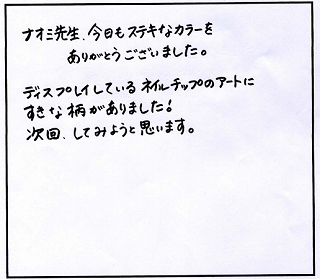 ナオミ先生、今日もステキなカラーを
ありがとうございました。
ディスプレイしているネイルチップのアートに
すきな柄がありました!
次回、してみようと思います。